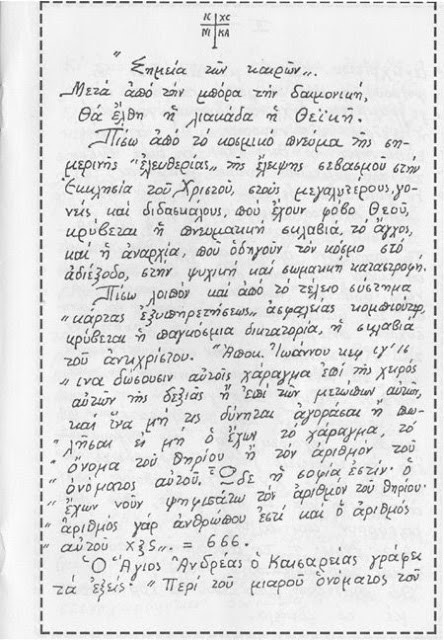 IC XC
NI KA
"Σημεία τῶν καιρῶν".
Μετά ἀπό τήν μπόρα τήν δαιμονική,
Θά ἔλθη ἡ λιακάδα ἡ Θεϊκή.
Πίσω ἀπό τό κοσμικό πνεῦμα τῆς ση-
μερινῆς "ἐλευθερίας", τῆς ἔλειψης σεβασμοῦ στήν
Ἐκκλησία τοῦ Χριστοῦ, στούς μεγαλυτέρους, γο-
νεῖς καί διδασκάλους, πού ἔχουν φόβο Θεοῦ,
κρύβεται ἡ πνευματική σκλαβιά, τό ἄγχος,
καί ἡ ἀναρχία, πού ὁδηγοῦν τόν κόσμο στό
ἀδιέξοδο, στήν ψυχική καί σωματική καταστροφή.
Πίσω λοιπόν καί ἀπό τό τέλειο σύστημα
"κάρτας ἐξυπηρετήσεως" ἀσφαλείας κομπιοῦτερ,
κρύβεται ἡ παγκόσμια δικτατορία, ἡ σκλαβιά
τοῦ ἀντιχρίστου. "Ἀποκ. Ἰωάννου κεφ ιγ' 16
" ινα δώσουσιν αὐτοῖς χάραγμα ἐπί τῆς χειρός
αὐτῶν τῆς δεξιᾶς ἤ ἐπί τῶν μετώπων αὐτῶν,
καί ἵνα μή τις δύνηται ἀγοράσαι ἤ πω-
" λῆσαι εἰ μή ὁ ἔχων τό χάραγμα, τό
" ὄνομα τοῦ θηρίου ἤ τόν ἀριθμόν τοῦ
" ὀνόματος αὐτοῦ. Ὧδε ἡ σοφία ἐστίν· ὁ
" ἔχων νοῦν ψηφισάτω τόν ἀριθμόν τοῦ θηρίου·
" ἀριθμός γάρ ἀνθρώπου ἐστί καί ὁ ἀριθμός
" αὐτοῦ χξς". = 666.
Ὁ Ἅγιος Ἀνδρέας ὁ Καισαρείας γράφει
τά ἑξεῖς· "Περί τοῦ μιαροῦ ὀνόματος τοῦ